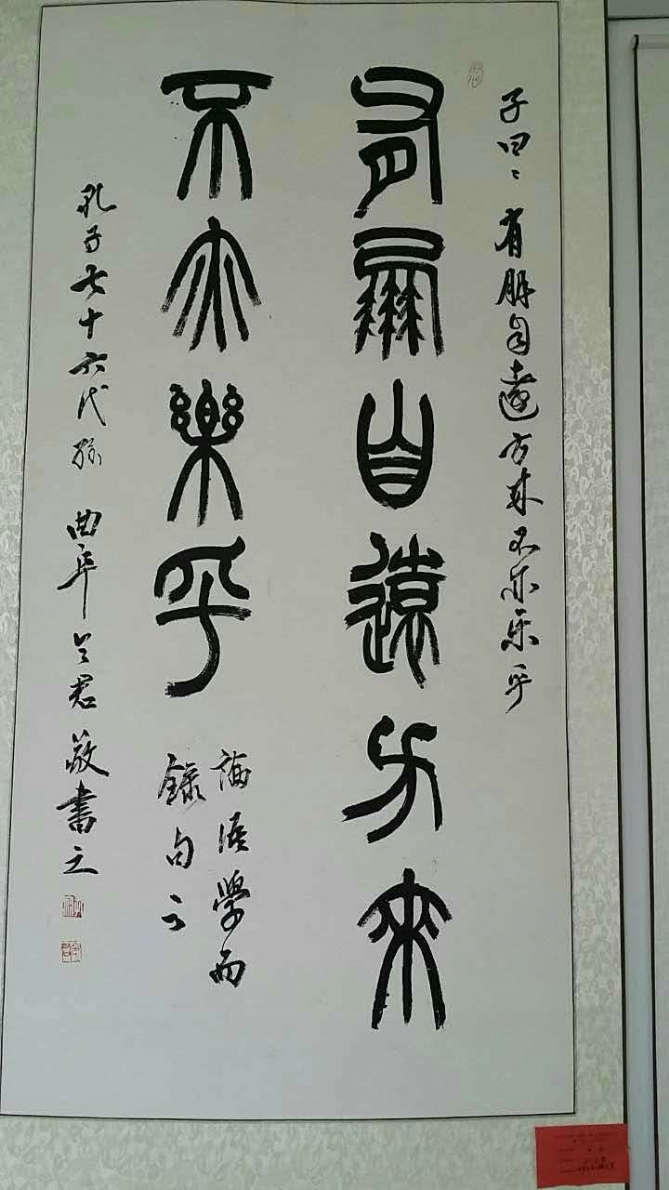 子曰：有朋自遠方来不亦乐乎
有朋自遠方來
不亦樂乎
論语學而
錄句
孔子七十六代孫 曲阜令君敬書之